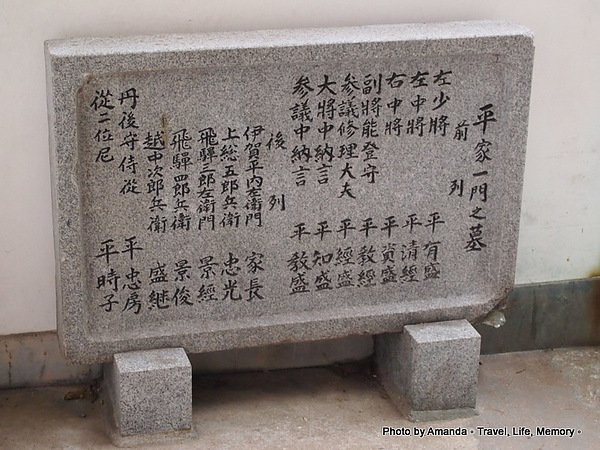 平家一門之墓
前列
左少將 平有盛
左中將 平清經
右中將 平資盛
副將能登守 平敎經
參議修理大夫 平經盛
大將中納言 平知盛
參議中納言 平敎盛
後列
伊賀平內左衛門 家長
上総五郎兵衛 忠光
飛騨三郎左衛門 景經
飛騨四郎兵衛 景俊
越中次郎兵衛 盛継
丹後守侍從 平忠房
從二位尼 平時子
Photo by Amanda - Travel, Life, Memory -